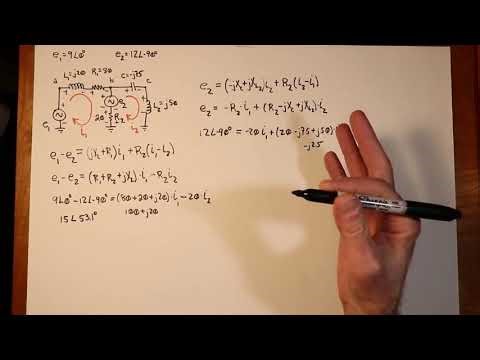 e₁=9∠0° e₂=12∠-90°
L₁=j20 R₁=80 C=-j75
a b c
e₁ i₁ e₂ i₂ L₂=j50
20 R₂
e₁-e₂=(jX₁+R₁)i₁+R₂(i₁-i₂)
e₁-e₂=(R₁+R₂+jX₁)·i₁-R₂i₂
9∠0°-12∠-90°=(80+20+j20)·i₁-20·i₂
15∠53.1° 100+j20
e₂=(-jX+jX₂)i₂+R₂(i₂-i₁)
e₂=-R₂·i₁+(R₂-jX+jX₂)·i₂
12∠-90°=-20·i₁+(20-j75+j50)·
-j25